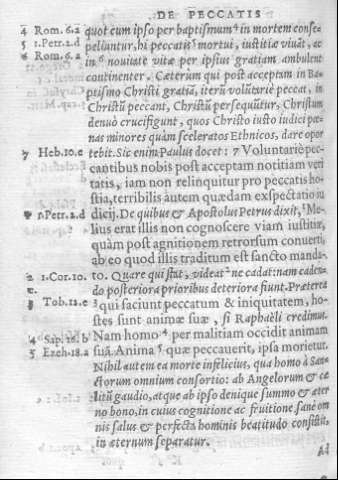 DE PECCATIS
4 Rom. 6.a quot cum ipso per baptismum⁴ in mortem conse-
5 1.Petr.2.d peliuntur, hi peccatis⁵ mortui, iustitiæ viuāt, ac
6 Rom. 6.a in⁶ nouitate vitæ per ipsius gratiam ambulent
continenter. Cæterum qui post acceptam in Ba-
ptismo Christi gratiā, iterū volūtariè peccāt, in
Christū peccant, Christū persequūtur, Christum
denuò crucifigunt, quos Christo iusto iudici pœ-
nas minores quàm sceleratos Ethnicos, dare opor
7 Heb.10.e tebit. Sic enim Paulus docet: 7 Voluntariè pec-
cantibus nobis post acceptam notitiam veri
tatis, iam non relinquitur pro peccatis ho-
stia, terribilis autem quædam exspectatio iu
1.Petr.2.d dicij. De quibus & Apostolus Petrus dixit, Me-
lius erat illis non cognoscere viam iustitiæ,
quàm post agnitionem retrorsum conuerti,
ab eo quod illis traditum est sancto manda-
2 1.Cor.10. to. Quare qui stat, videat² ne cadat: nam caden-
c. do posteriora prioribus deteriora fiunt. Præterea
3 Tob.12.c ³qui faciunt peccatum & iniquitatem, ho-
stes sunt animæ suæ, si Raphaëli credimus.
4 Sap.16.b Nam homo⁴ per malitiam occidit animam
5 Ezech.18.a suā. Anima⁵ quæ peccauerit, ipsa morietur.
Nihil autem ea morte infelicius, qua homo à San-
ctorum omnium consortio: ab Angelorum & cæ
litū gaudio, atque ab ipso denique summo & æter
no bono, in cuius cognitione ac fruitione sanè om
nis salus & perfecta hominis beatitudo consistit,
in æternum separatur.
Ad